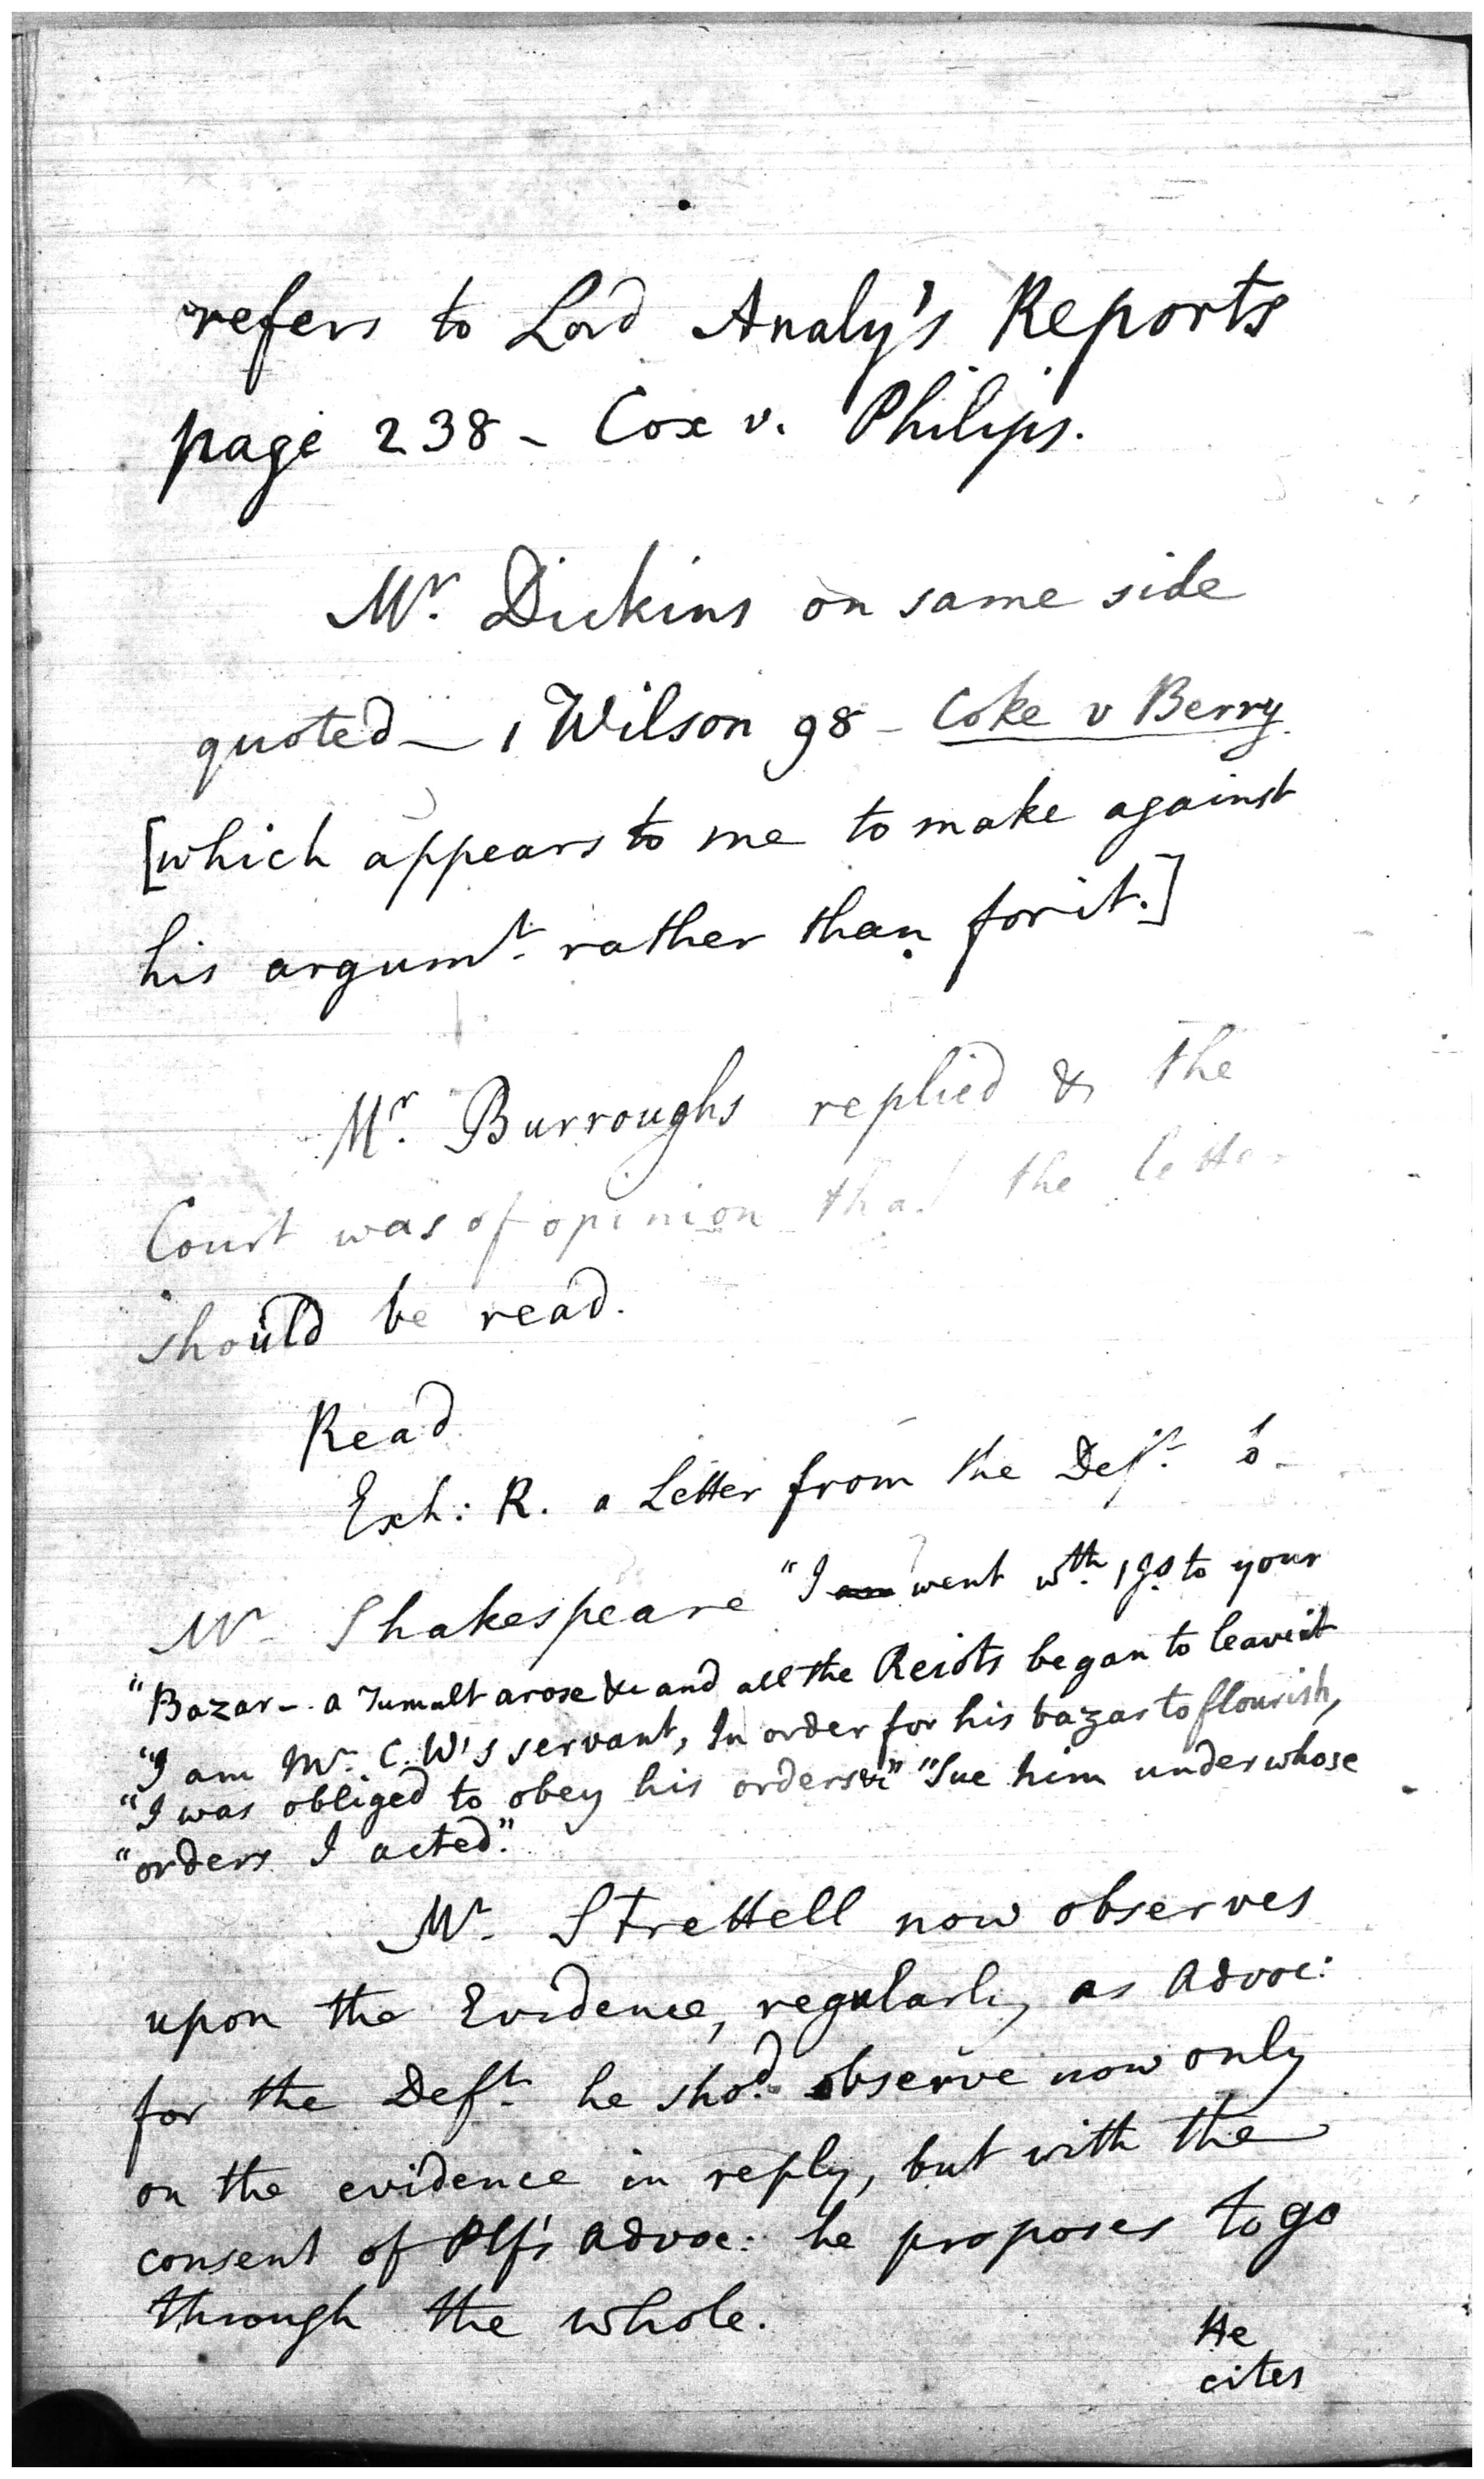 refers to Lord Analy's Reports
page 238 - Cox v. Philips.
Mr. Dickins on same side
quoted - 1 Wilson 98 - Coke v Berry.
[which appears to me to make against
his argumt. rather than for it.]
Mr. Burroughs replied & the
Court was of opinion that the letter
should be read.
Read
Exh: R. a Letter from the Deft. to
Mr. Shakespeare "I am went wth. to your
"Bazar - a Tumult arose &c and all the Reiots began to leave it
"I am Mr. C. W's servant, In order for his bazar to flourish,
"I was obliged to obey his orders &c" "Sue him under whose
"orders I acted".
Mr. Strettell now observes
upon the Evidence, regularly, as Advoc:
for the Deft. he shod. observe now only
on the evidence in reply, but with the
consent of Plf's Advoc: he proposes to go
through the whole.
He
cites